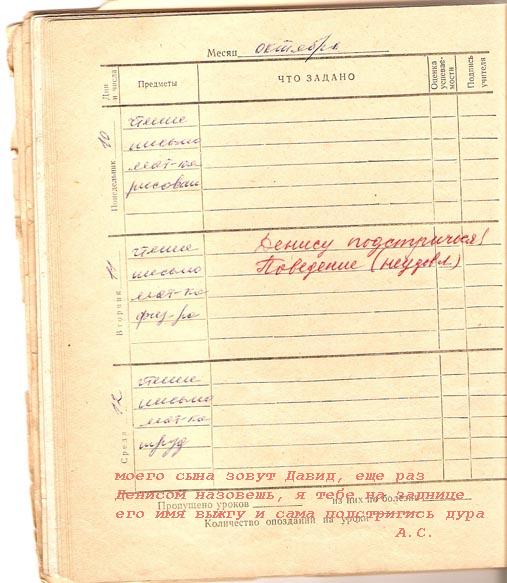 Месяц октябрь
Дни и числа Предметы ЧТО ЗАДАНО Оценка успеваемости Подпись учителя
Понедельник 10
чтение
письмо
мат-ка
рисован
Вторник 11
чтение
письмо
мат-ка
физ-ра
Денису подстричься!
Поведение (неудовл)
Среда 12
чтение
письмо
мат-ка
труд
моего сына зовут Давид, еще раз
Денисом назовешь, я тебе на заднице
его имя выжгу и сама подстригись дура
А.С.
Пропущено уроков из них по болезни
Количество опозданий на уроки